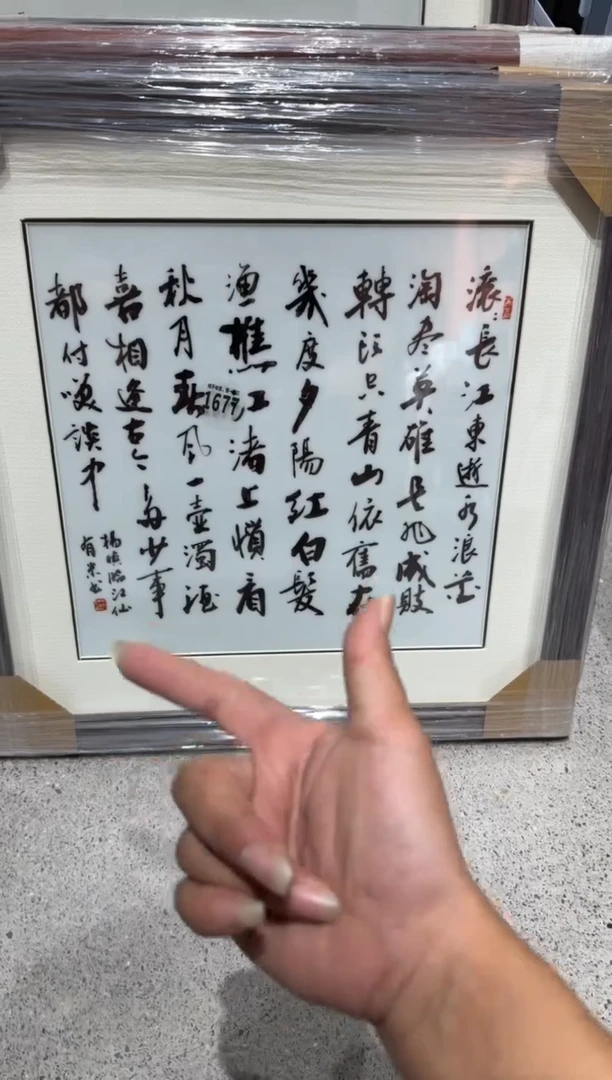 滚滚長江東逝水浪花
淘尽英雄是非成敗
轉頭空青山依舊在
幾度夕陽红白髮
渔樵江渚上慣看
秋月春风一壶濁酒
喜相逢古今多少事
都付笑談中
楊慎臨江仙
1679